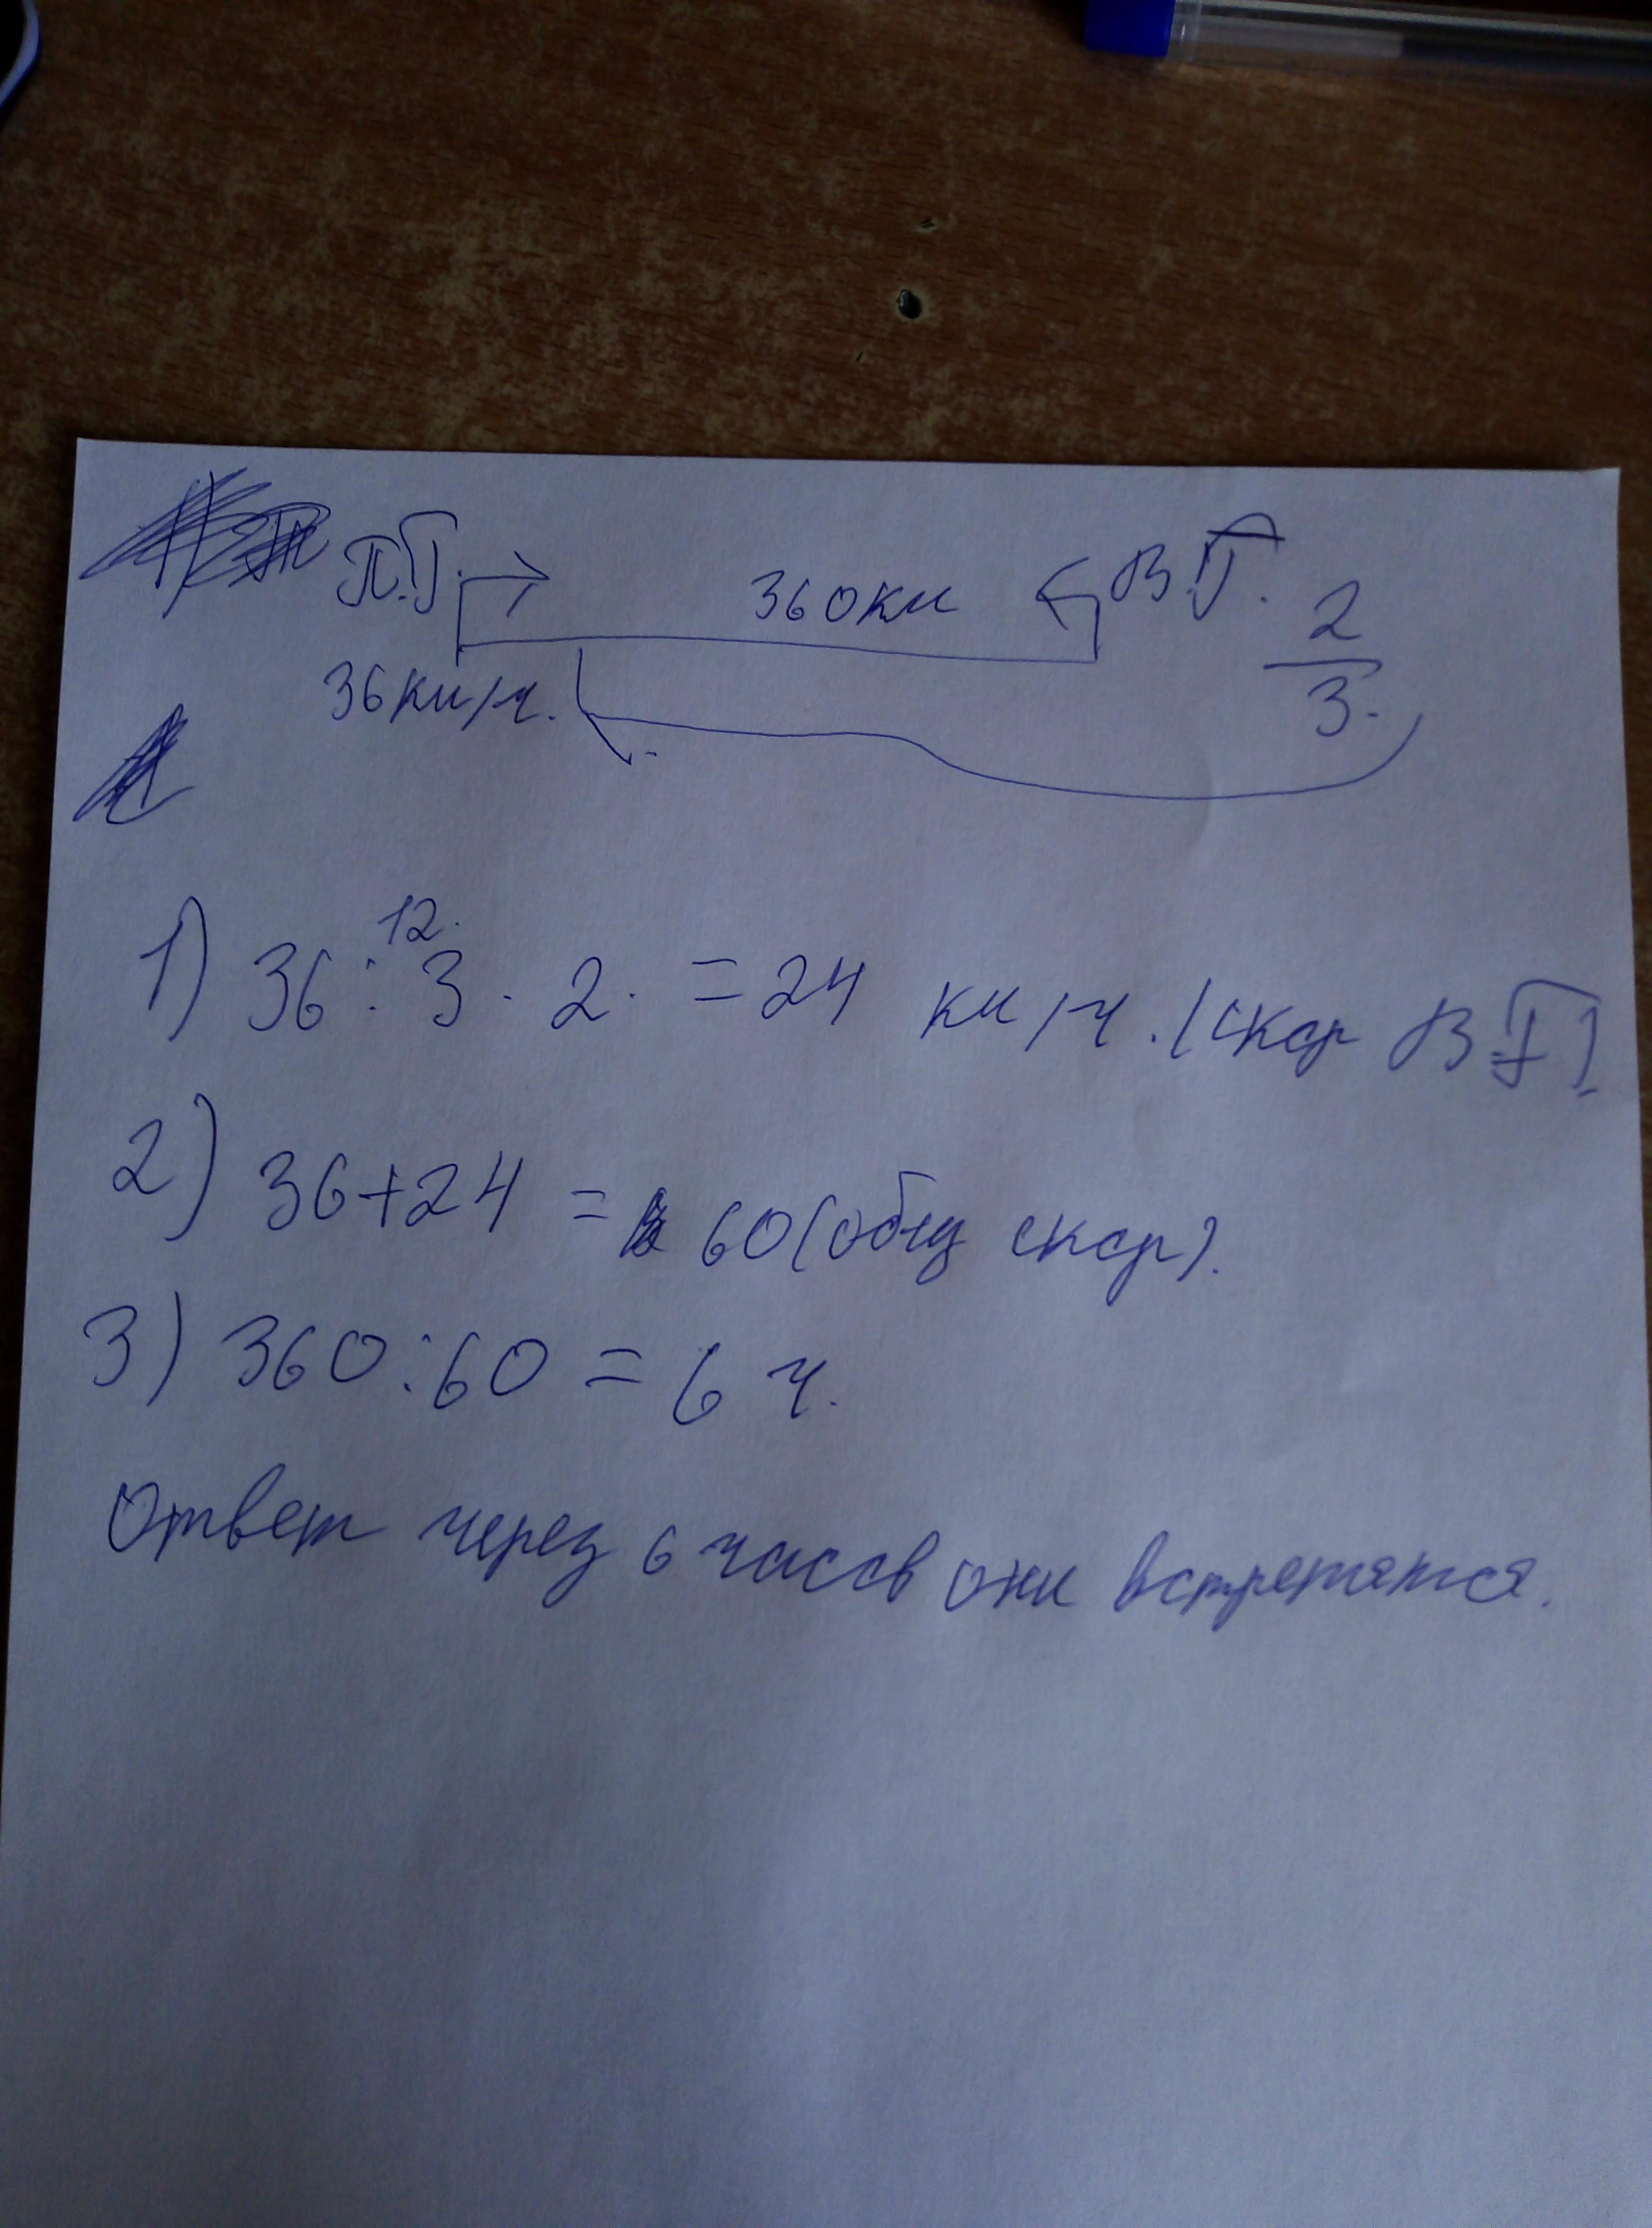 П.Г. 360 км В.Г. 2/3.
36 км/ч.
12.
1) 36 : 3 · 2. = 24 км/ч. (скор В.Г)
2) 36+24 = 60 (общ скор).
3) 360:60 = 6 ч.
Ответ через 6 часов они встретятся.